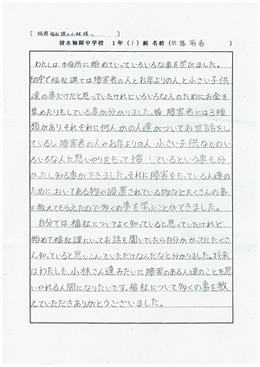 〔 福祉課の小林 様へ 〕
清水袖師中学校 1年 ( 1 ) 組 名前 (佐藤 ）
わたしは市役所に始めていっていろいろな事を学びました。
その中で福祉課では障害者の人とお年よりの人と小さい子供
達の事だけだと思っていたけれどいろいろな人のためにお金を
集めたりもしている事が分かりました。後、障害者には3種
類がありそれぞれに何人かの人達がついてお世話をし
ているし障害者の人やお年よりの人、小さい子供などのい
ろいろな人に思いやりをもって接しているという事も分
かったし知る事ができました。それに障害をもっている人達の
ためにおいてある物や設置されている物などたくさんの事
を教えてもらえたので多くの事を学ぶことができました。
自分では福祉についてよく知っていると思っていたけれど
始めて福祉課にいってお話を聞いていたら自分がかってにたくさ
ん知っていると思いこんでいただけなんだなと分かりました。将来
はわたしも、小林さん達みたいに障害のある人達のことを思
いやれる人間になりたいです。福祉について多くの事を教
えていただきありがとうございました。